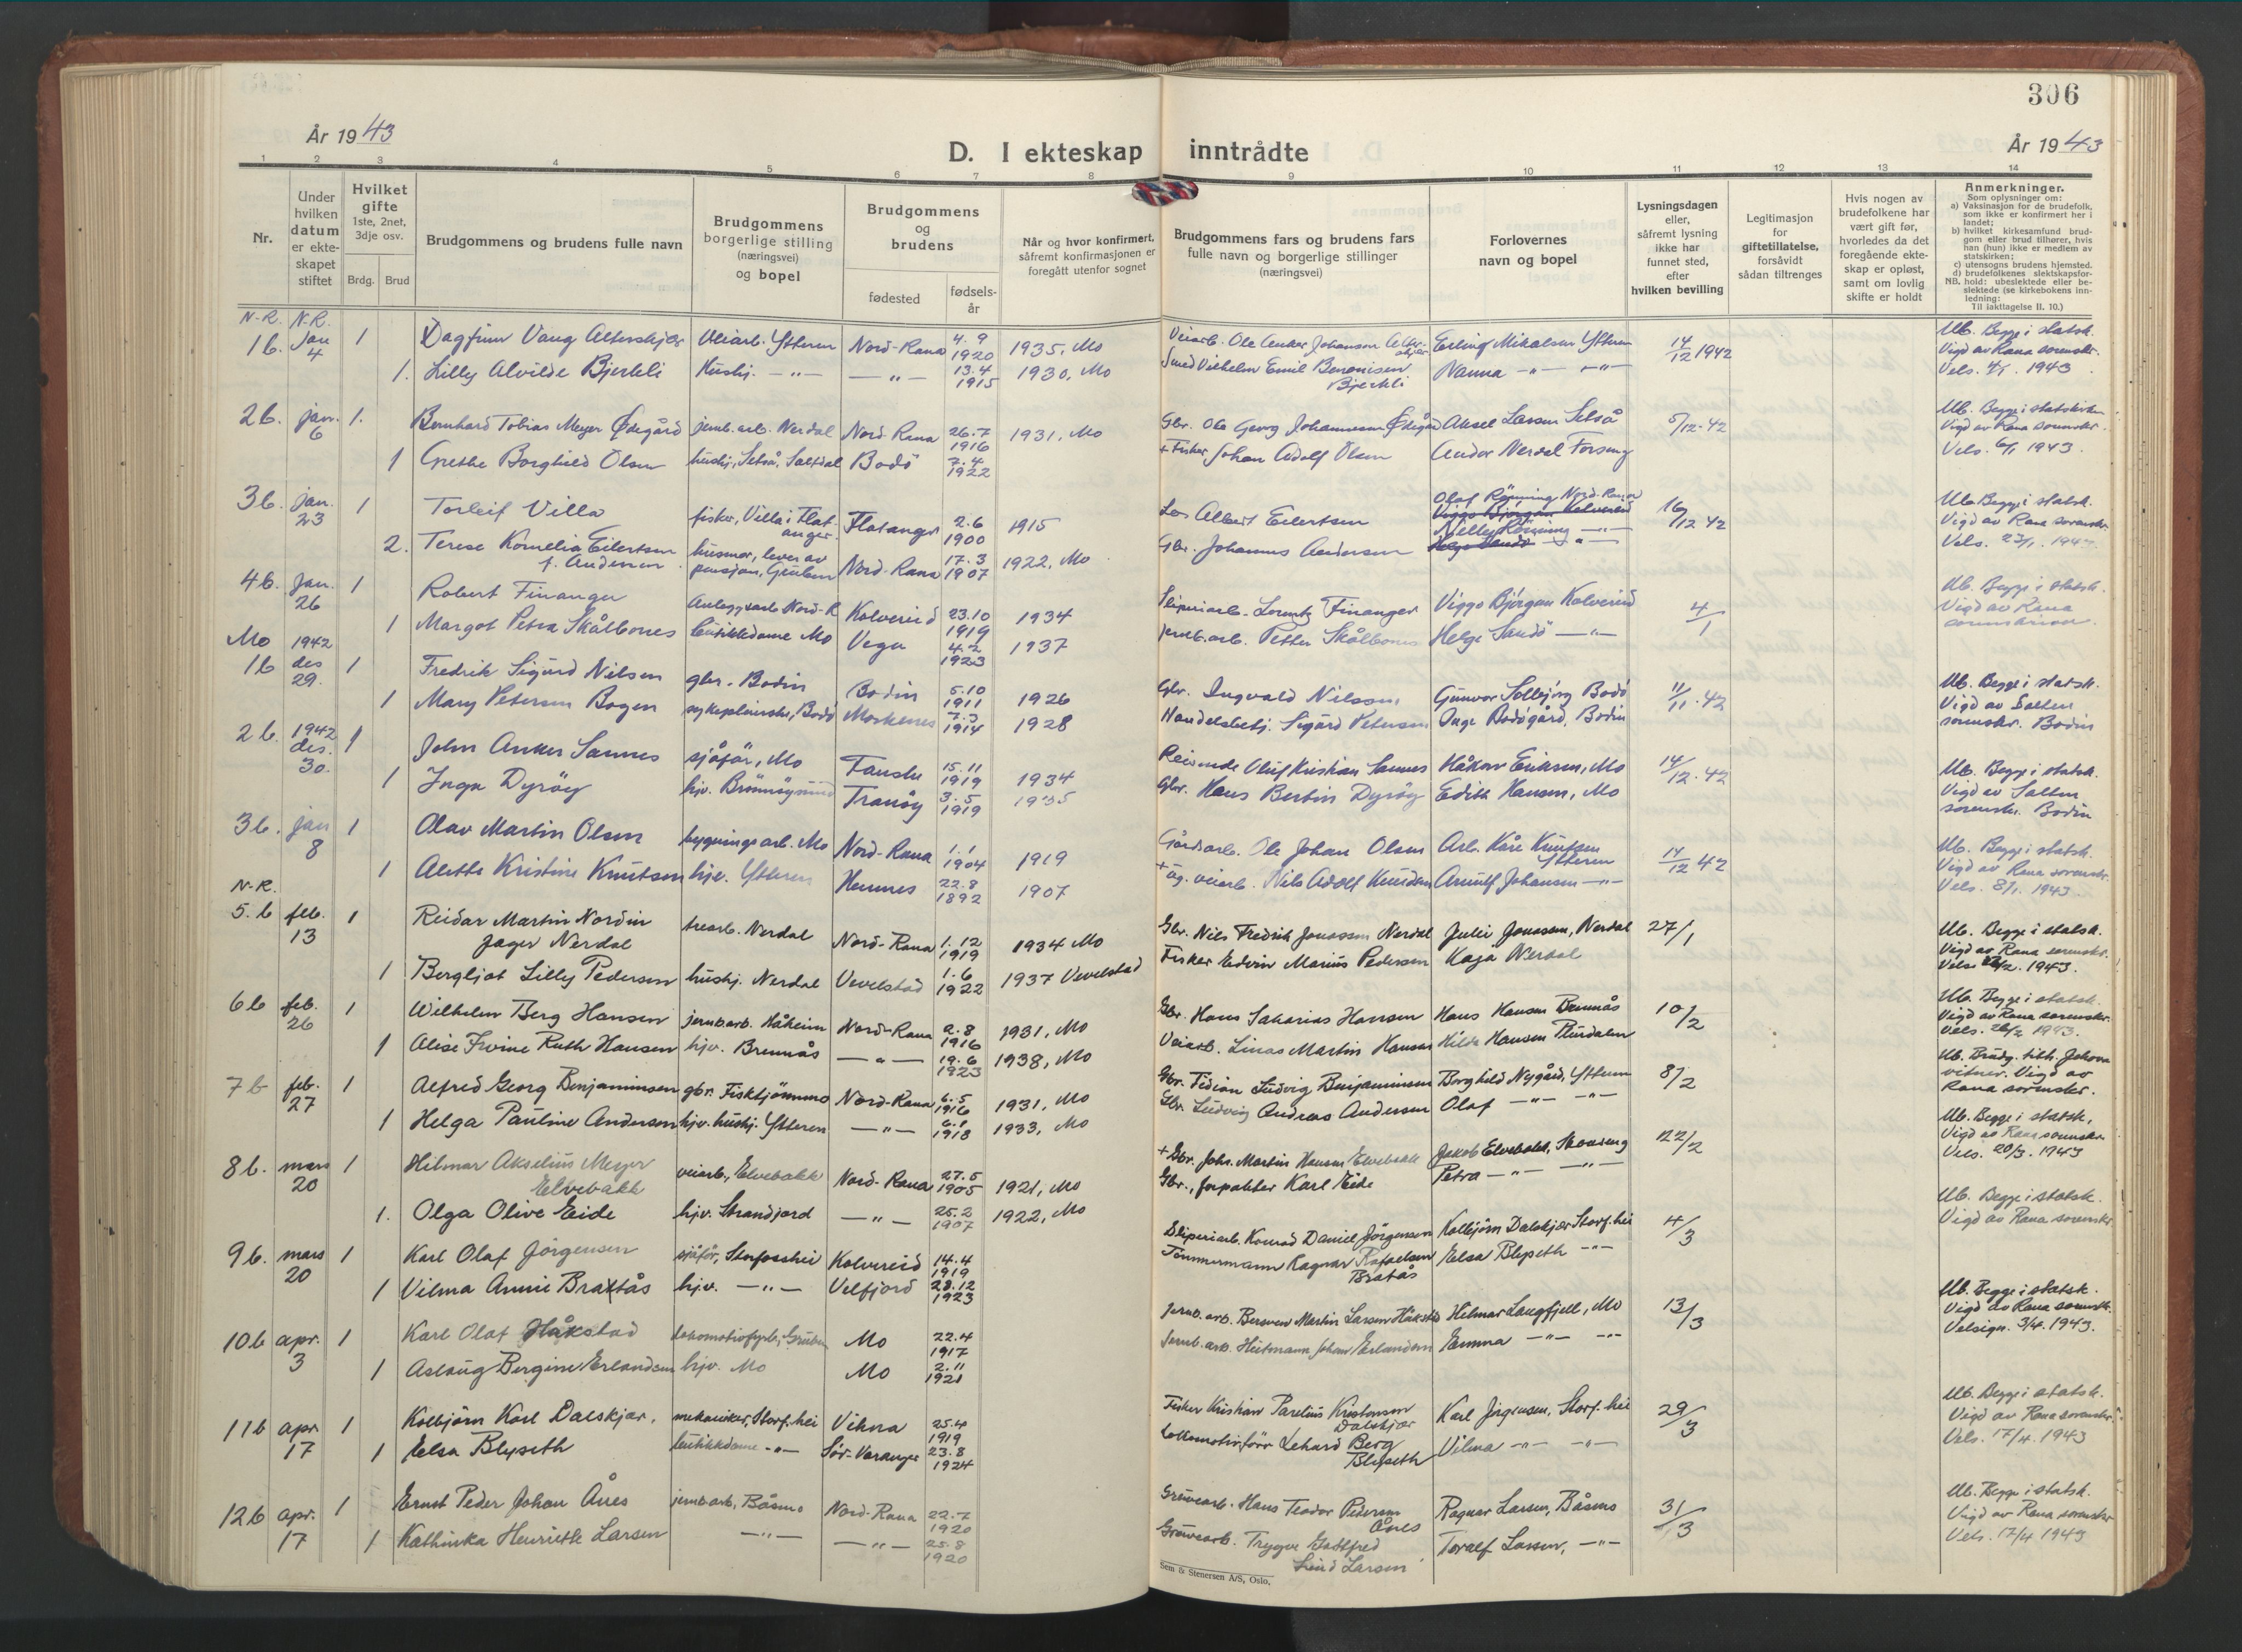 306
År 1943
D. I ekteskap inntrådte
År 1943
1 2 3 4 5 6 7 8 9 10 11 12 13 14
Nr.
Under hvilken datum er ekteskapet stiftet
Hvilket gifte 1ste, 2net, 3dje osv.
Brdg. Brud
Brudgommens og brudens fulle navn
Brudgommens borgerlige stilling (næringsvei) og bopel
Brudgommens og brudens
fødested
fødselsår
Når og hvor konfirmert, såfremt konfirmasjonen er foregått utenfor sognet
Brudgommens fars og brudens fars fulle navn og borgerlige stillinger (næringsvei)
Forlovernes navn og bopel
Lysningsdagen eller, såfremt lysning ikke har funnet sted, efter hvilken bevilling
Legitimasjon for giftetillatelse, forsåvidt sådan tiltrenges
Hvis nogen av brudefolkene har vært gift før, hvorledes da det foregående ekteskap er opløst, samt om lovlig skifte er holdt
Anmerkninger.
Som oplysninger om:
a) Vaksinasjon for de brudefolk, som ikke er konfirmert her i landet;
b) hvilket kirkesamfund brudgom eller brud tilhører, hvis han (hun) ikke er medlem av statskirken;
c) utensogns brudens hjemsted.
d) brudefolkenes slektskapsforhold: ubeslektede eller beslektede (se kirkebokens innledning:
NB. Til iakttagelse II. 10.)
N-R. N-R.
1b. Jan 4 1 Dagfinn Vang Alterskjær Veiarb. Ytteren Nord-Rana 4.9 1920 1935, Mo Veiarb. Ole Anker Johansen Alterskjær Erling Mikalsen Ytteren 14/12 1942 Ub. Begge i statsk. Vigd av Rana sorenskr. Vels. 4/1. 1943
1. Lilly Alvilde Bjerkli Hushj. -"- -"- 13.4 1915 1930, Mo Smed Vilhelm Emil Benonisen Bjerkli Nanna -"- -"-
2b. jan. 6 1. Bernhard Tobias Meyer Ødegård jernb.arb. Nerdal Nord-Rana 26.7 1916 1931, Mo Gbr. Ole Georg Johannessen Ødegård Aksel Larsen Setså 5/12-42 Ub. Begge i statskirken Vigd av Rana sorenskr. Vels. 6/1 1943.
1 Grethe Borghild Olsen hushj. Setså, Saltdal Bodö 7.4 1922 + Fisker Johan Adolf Olsen Andor Nerdal Forseng
3b. jan. 23 1 Torleif Villa fisker, Villa i Flatanger Flatanger 2.6 1900 1915 Los Albert Eilertsen Olaf Rönning Nord-Rana 16/12 42 Ub. Begge i statsk. Vigd av Rana sorenskr. Vels. 23/1. 1943
2. Terese Kornelia Eilertsen f. Andersen husmor, lever av pensjon, Gruben Nord-Rana 17.3 1907 1922, Mo Gbr. Johannes Andersen Nelly Rönning -"-
4b. jan. 26 1 Robert Finanger Anleggsarb Nord-R Kolvereid 23.10 1919 1934 Sliperiarb. Lorentz Finanger Viggo Bjørgan Kolvereid 4/1 Ub. Begge i statsk. Vigd av Rana sorenskriver.
1 Margot Petra Skålbones butikkdame Mo Vega 4.2 1923 1937 Jernb.arb. Petter Skålbones Helge Sandö -"-
Mo 1942
1b des 29. 1 Fredrik Sigurd Nilsen gbr. Bodin Bodin 5.10 1911 1926 Gbr. Ingvald Nilssen Gunvor Solbjörg Bodö 11/11.42 Ub. Begge i statsk. Vigd av Salten sorenskr. Bodin
1 Mary Petersen Bogen sykepleierske, Bodö Moskenes 7.3 1914 1928 Handelsbetj. Sigurd Petersen Inge Bodögård, Bodin
2b. 1942 des. 30. 1 John Anker Sannes sjåför, Mo Fauske 15.11 1919 1934 Reisende Oluf Kristian Sannes Håkon Eriksen, Mo 14/12.42 Ub. Begge i statsk. Vigd av Salten sorenskr. Bodin
1 Inga Dyröy hjv. Brönnöysund Tranöy 3.5 1919 1935 Gbr. Hans Bertin Dyröy Edith Hansen, Mo
3b. jan 8 1 Olav Martin Olsen bygningsarb. Mo Nord-Rana 1.1 1904 1919 Gårdsarb. Ole Johan Olsen Arb. Kåre Knutsen Ytteren 14/12 42 Ub. Begge i statsk. Vigd av Rana sorenskr. Vels. 8/1. 1943.
1 Alette Kristine Knutsen hjv. Ytteren Hemnes 22.8 1892 1907 + veiarb. Nils Adolf Knutsen Arnulf Johansen -"-
N-R.
5.b feb. 13 1 Reidar Martin Nordin Jager Nerdal trearb. Nerdal Nord-Rana 1.12 1919 1934 Mo Gbr. Nils Fredrik Jonassen Nerdal Julie Jonassen, Nerdal 27/1 Ub. Begge i statsk. Vigd av Rana sorenskr. Vels. /2. 1943.
1 Bergljot Lilly Pedersen hushj. Nerdal Vevelstad 1.6 1922 1937 Vevelstad Fisker Edvin Marius Pedersen Kaja Nerdal
6b feb. 26 1 Wilhelm Berg Hansen jernb.arb. Håheim Nord-Rana 2.8 1916 1931, Mo Gbr. Hans Sakarias Hansen Hans Hansen Brennås 10/2 Ub. Begge i statsk. Vigd av Rana sorenskr. Vels. 26/2 1943.
1 Alise Irvine Ruth Hansen hjv. Brennås -"- 19.6 1923 1938, Mo Veiarb. Linas Martin Hansen Hilda Hansen
7b feb. 27 1 Alfred Georg Benjaminsen gbr. Fisktjönnmo Nord-Rana 6.5 1916 1931, Mo Gbr. Fidian Ludvig Benjaminsen Borghild Nygård, Ytteren 8/2 Ub. Brudg. tilh. Jehova vitner. Vigd av Rana sorenskr.
1 Helga Pauline Andersen hjv. hushj. Ytteren -"- 6.1 1913 1933, Mo Gbr. Ludvig Andreas Andersen Olaf -"- -"-
8b. mars 20 1 Hilmar Akselius Meyer Elvebakk veiarb., Elvebakk Nord-Rana 27.5 1905 1921, Mo + Gbr. Johs. Martin Hansen Elvebakk Jakob Elvebakk, Skonseng 22/2 Ub. Begge i statsk, Vigd av Rana sorenskr Vels. 20/3. 1943
1. Olga Olive Eide hjv. Strandjord -"- 25.2 1907 1922, Mo Gbr., forpakter Karl Eide Petra -"- -"-
9b. mars 20 1 Karl Olaf Jörgensen sjåför, Storfosshei Kolvereid 14.4 1919 Sliperiarb. Konrad Daniel Jörgensen Kolbjörn Dalskjær Storf.hei 4/3 Ub. Begge i statsk. Vigd av Rana sorenskr
1 Vilma Annie Bratås hjv. -"- Velfjord 28.12 1923 Tömmermann Ragnar Rafaelsen Bratås Elsa Blyseth -"-
10b apr. 3 1 Karl Olaf Håkstad lokomotivfyrb., Gruben Mo 22.4 1917 Jernb.arb. Bersven Martin Larsen Håkstad Hilmar Langfjell, Mo 13/3 Ub. Begge i statsk. Vigd av Rana sorenskr. Velsign. 3/4. 1943.
1 Aslaug Bergine Erlandsen hjv. Mo Mo 2.11 1921 Jernb.arb. Heitmann Johan Erlandsen Emma -"- -"-
11b apr 17 1 Kolbjörn Karl Dalskjær, mekaniker, Storf.hei Vikna 25.4 1919 Fisker Kristian Parelius Kristensen Dalskjær Karl Jörgensen, Storf.hei 29/3 Ub. Begge i statsk. Vigd av Rana sorenskr. Vels. 17/4. 1943
1 Elsa Blyseth butikkdame -"- Sör-Varanger 23.8 1924 Lokomotivförer Lehard Berg Blyseth Vilma -"- -"-
12b apr. 17 1 Ernst Peder Johan Ånes jernb.arb, Båsmo Nord-Rana 22.7 1920 Gruvearb. Hans Teodor Pedersen Ånes Ragnar Larsen, Båsmo 31/3 Ub. Begge i statsk. Vigd av Rana sorenskr Vels. 17/4 1943
1 Kathinka Henriette Larsen -"- -"- 25.8 1920 Gruvearb. Trygve Gottfred Lind Larsen Toralf Larsen, -"-
Sem & Stenersen A/S, Oslo.